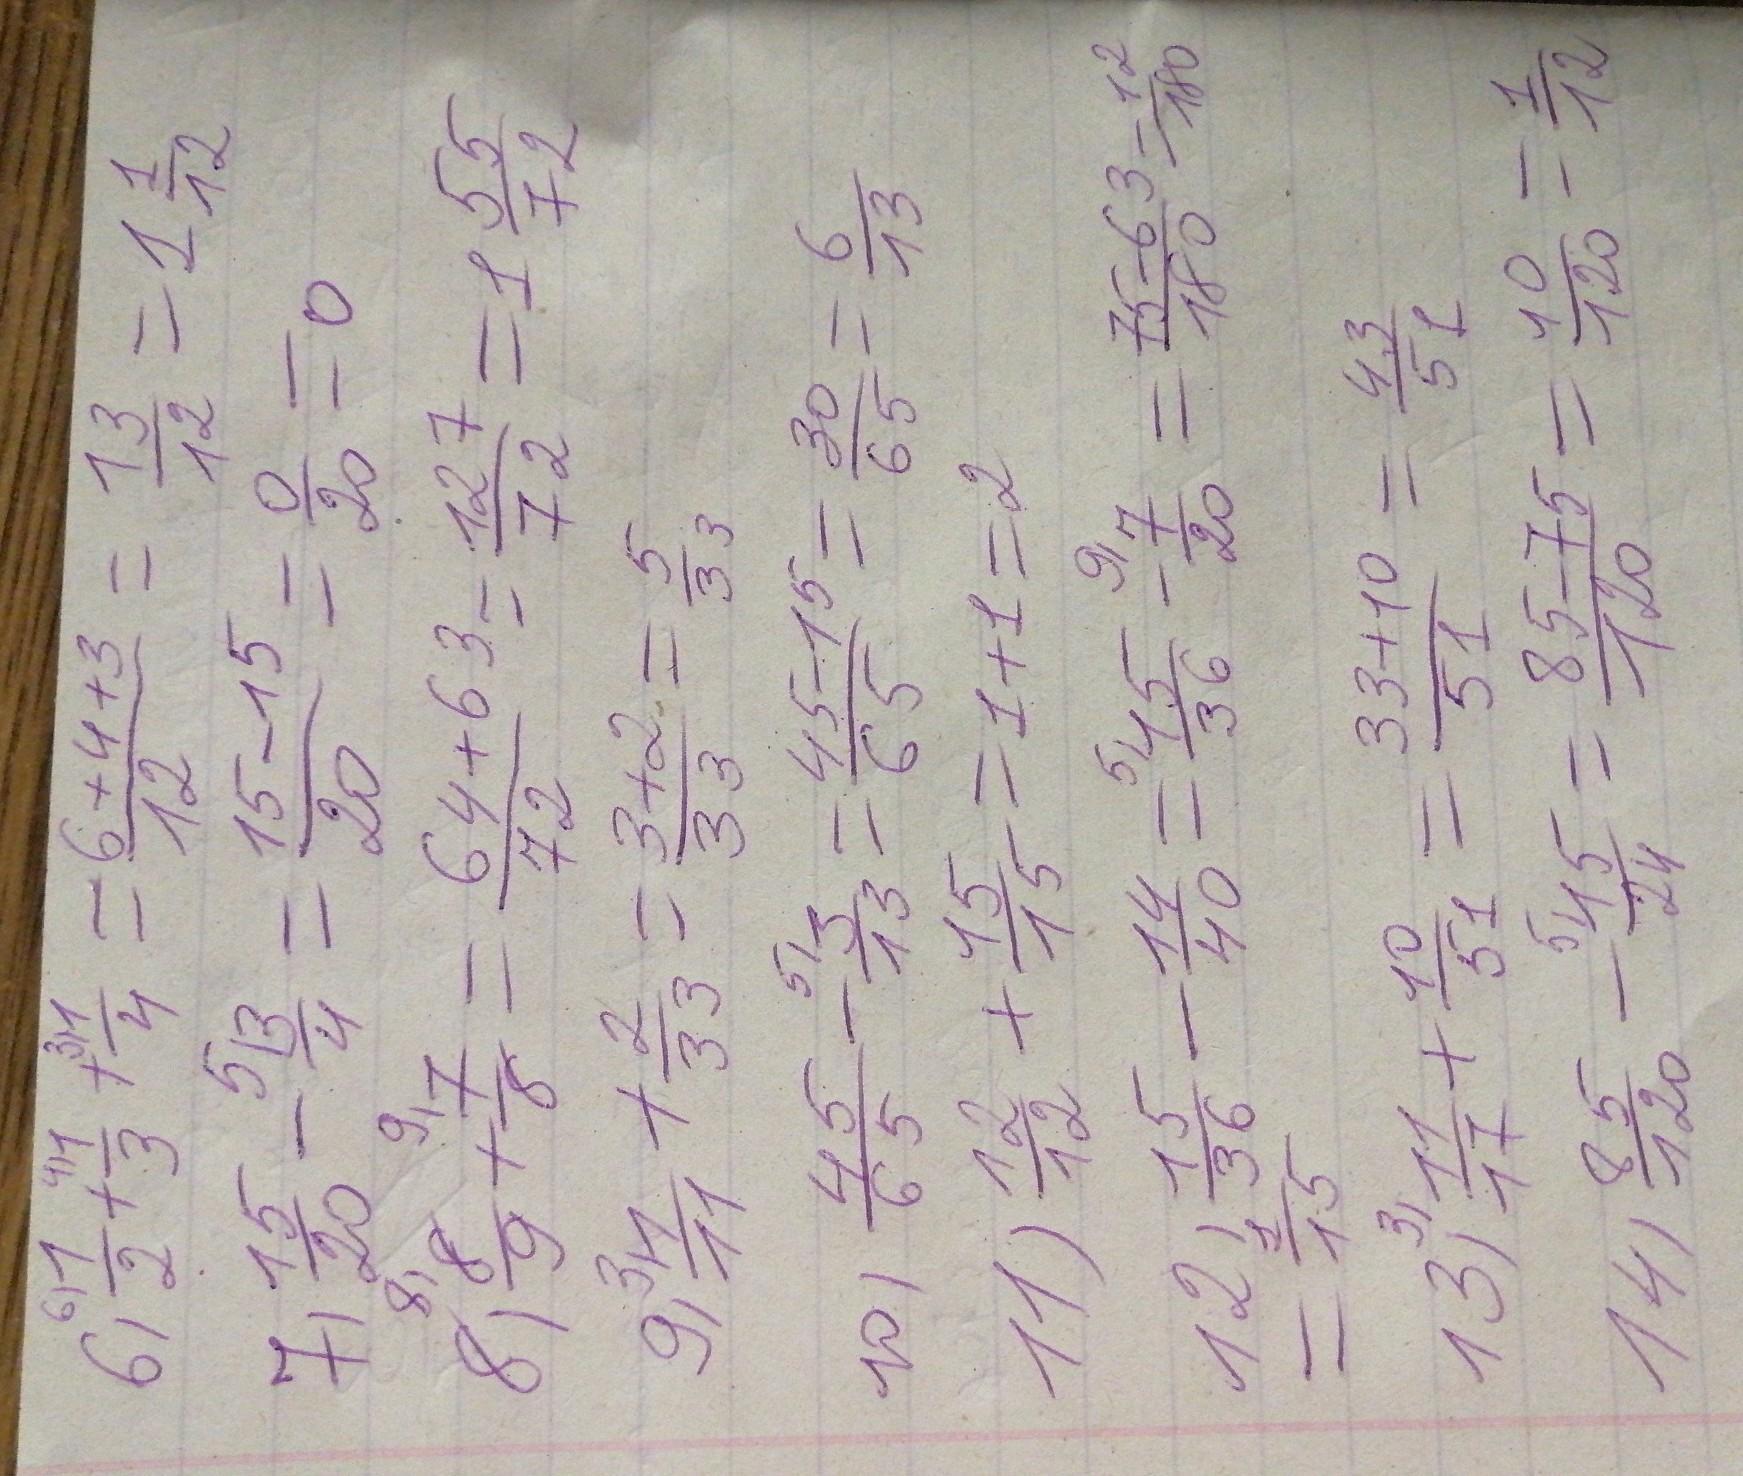 6) ⁶⁾1/2 + ⁴⁾1/3 + ³⁾1/4 = (6+4+3)/12 = 13/12 = 1 1/12
7) 15/20 - ⁵⁾3/4 = (15-15)/20 = 0/20 = 0
8) ⁸⁾8/9 + ⁹⁾7/8 = (64+63)/72 = 127/72 = 1 55/72
9) ³⁾1/11 + 2/33 = (3+2)/33 = 5/33
10) 45/65 - ⁵⁾3/13 = (45-15)/65 = 30/65 = 6/13
11) 12/12 + 15/15 = 1+1=2
12) 15/36 - 14/40 = ⁵⁾15/36 - ⁹⁾7/20 = (75-63)/180 = 12/180
= 1/15
13) ³⁾11/17 + 10/51 = (33+10)/51 = 43/51
14) 85/120 - ⁵⁾15/24 = (85-75)/120 = 10/120 = 1/12